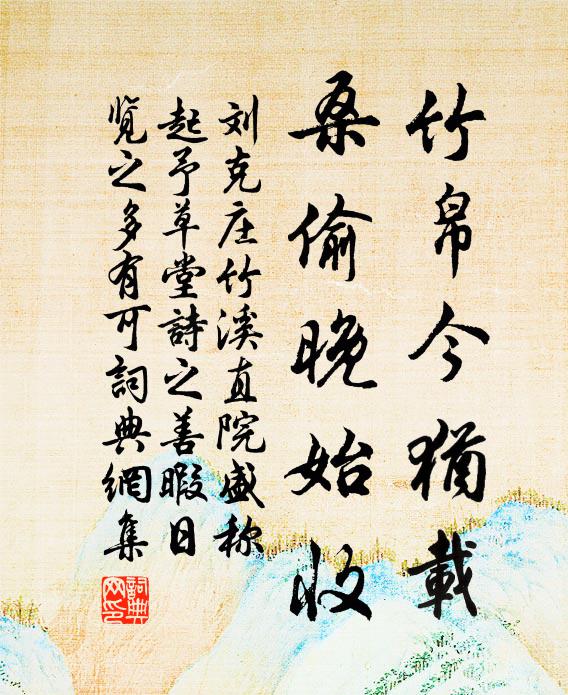 竹帛今猶載
桑偷晚始收
刘克庄竹溪直院盛称
起予草堂詩之善暇日
览之多有可詞典網集
詞典